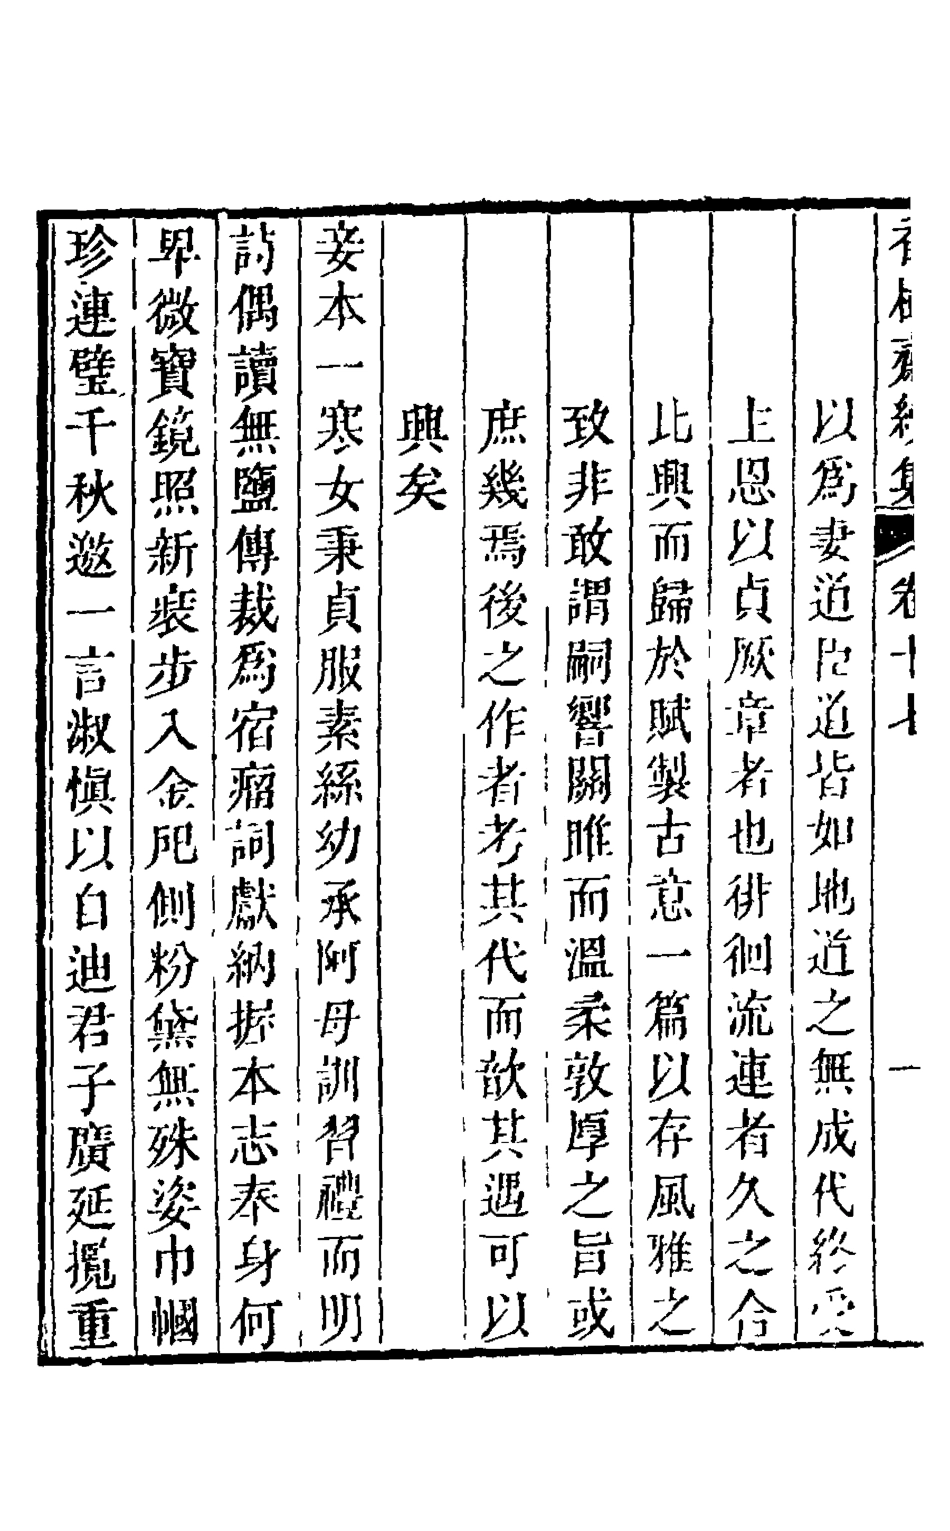 香樹齋續集 卷十七 一
以爲妻道臣道皆如地道之無成代終受
上恩以貞厥章者也徘徊流連者久之合
比興而歸於賦製古意一篇以存風雅之
致非敢謂嗣響關雎而溫柔敦厚之旨或
庶幾焉後之作者考其代而歆其遇可以
興矣
妾本一寒女秉貞服素絲幼承阿母訓習禮而明
詩偶讀無鹽傳裁爲宿瘤詞獻納抒本志奉身何
卑微寶鏡照新裝步入金戺側粉黛無殊姿巾幗
珍連璧千秋邀一言淑慎以自迪君子廣延攬重